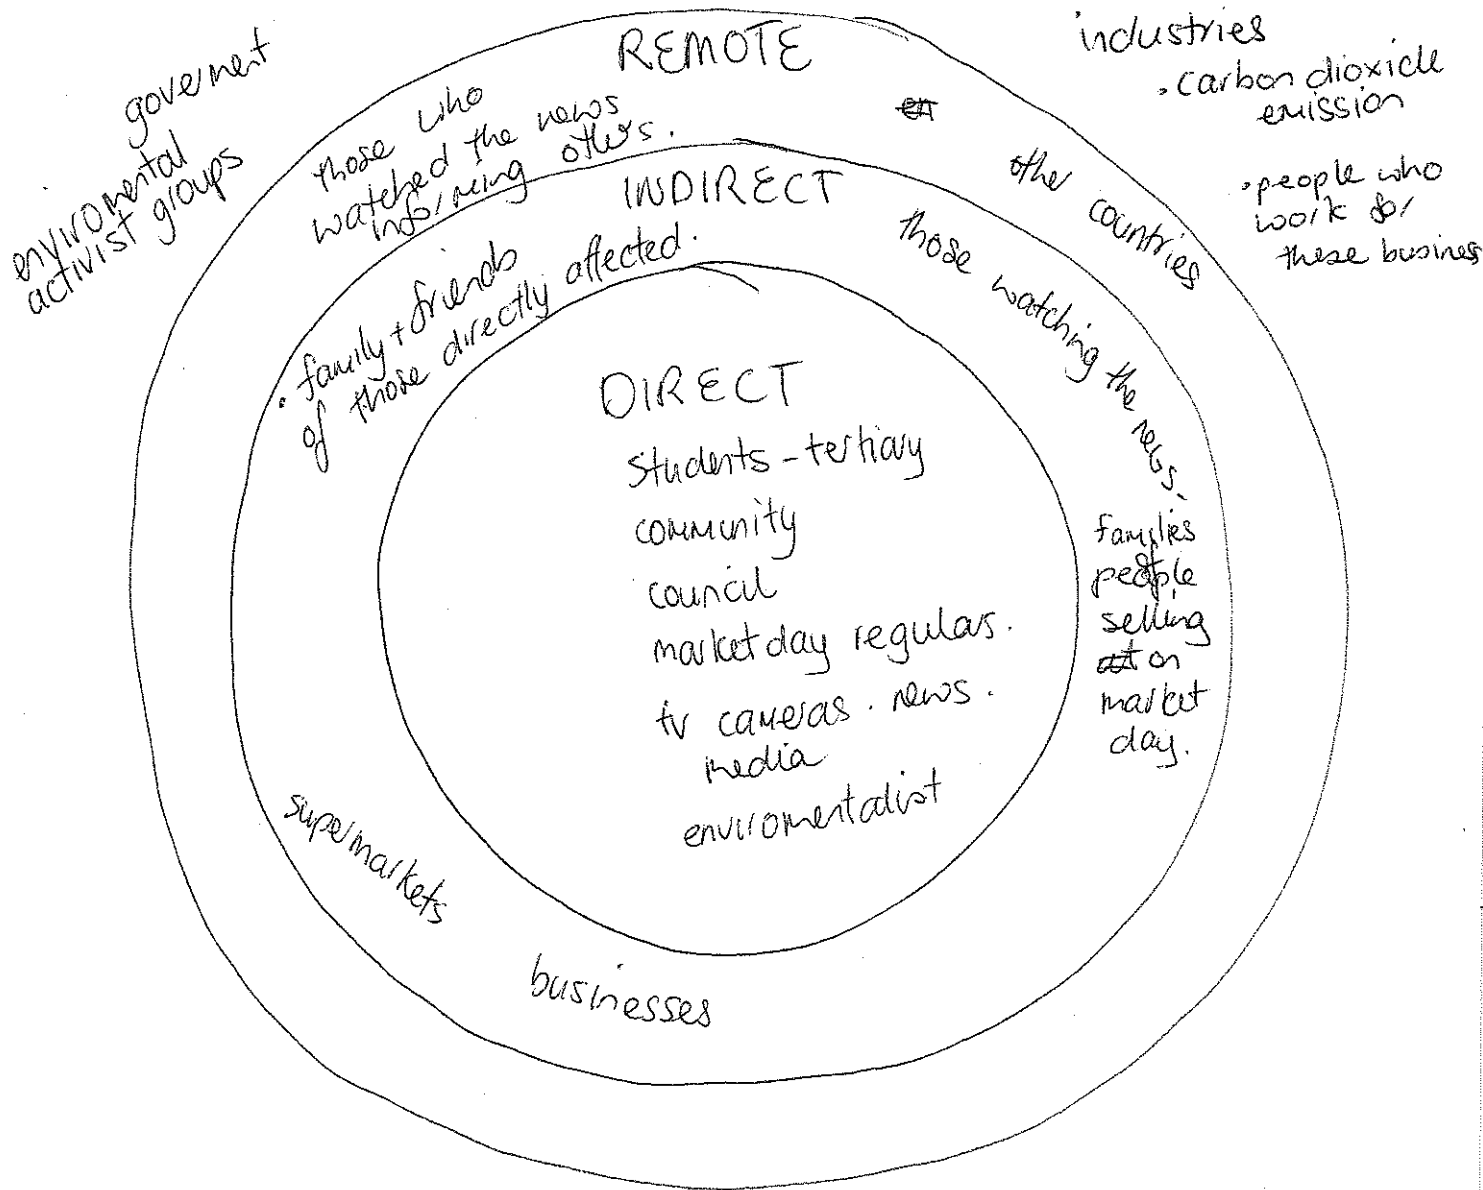 goverment
enviromental
activist groups
REMOTE
those who
watched the news
informing others.
other countries
industries
• carbon dioxide
emission
• people who
work for
these business
INDIRECT
• family + friends
of those directly affected.
those watching the news.
families
of
people
selling
on
market
day.
supermarkets
businesses
DIRECT
students - tertiary
community
council
market day regulars.
tv cameras . news .
media
enviromentalist